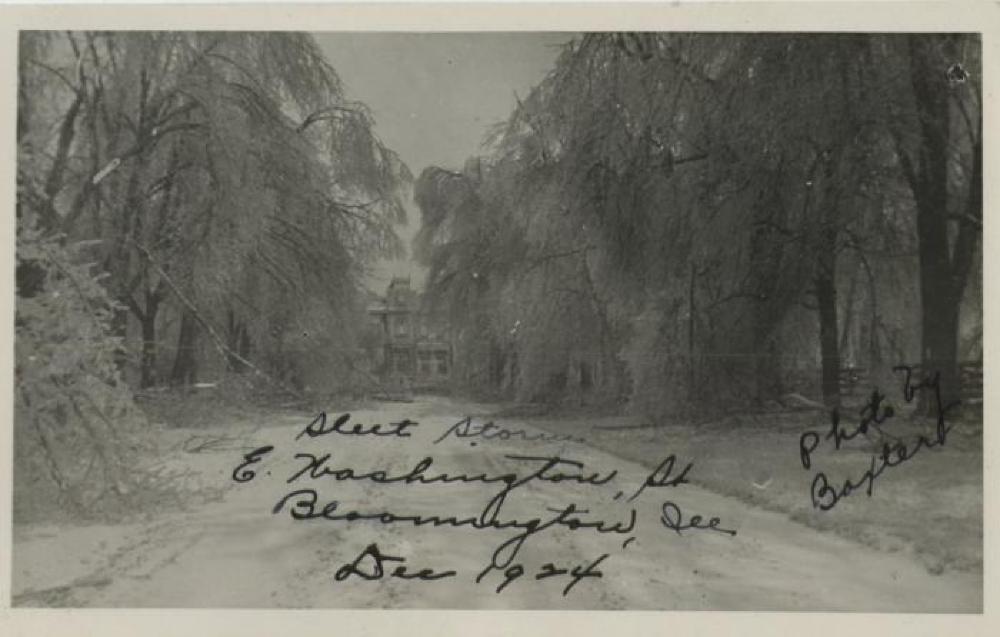 Sleet Storm
E. Washington, St
Bloomington, Ill
Dec 1924
Photo by
Baxter